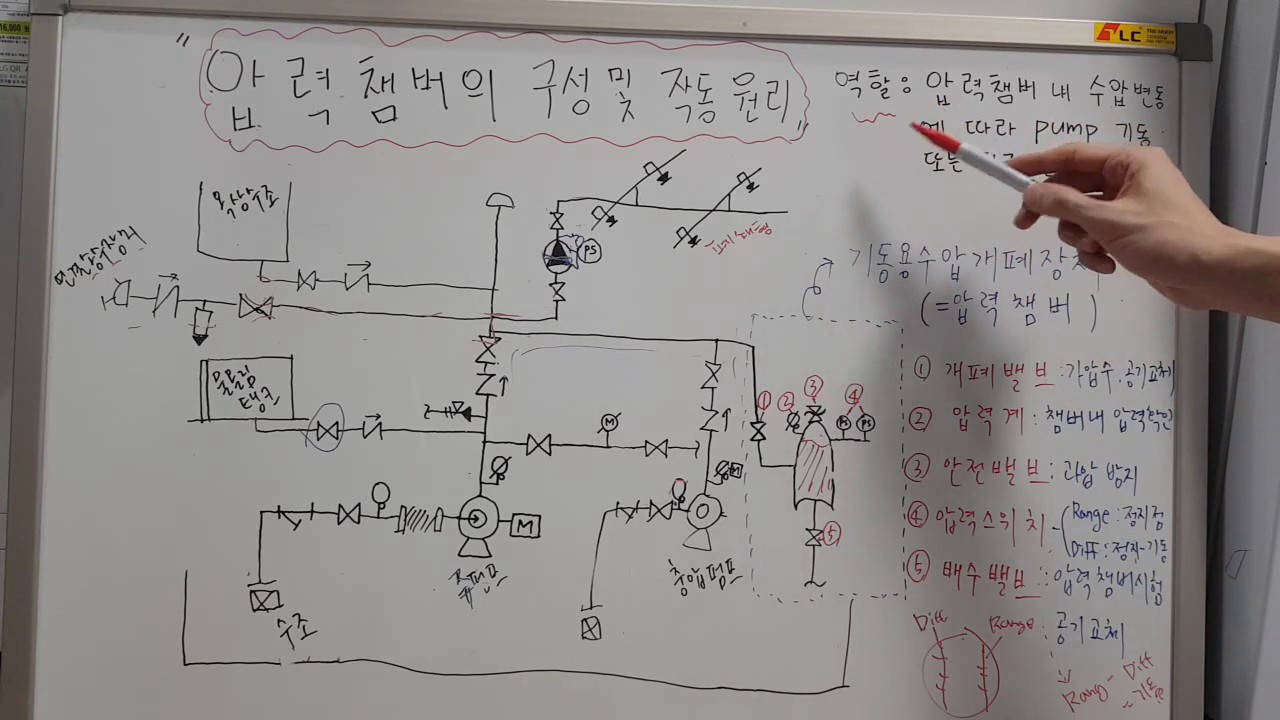 "압력챔버의 구성 및 작동원리"
역할: 압력챔버 내 수압변동
에 따라 pump 기동
또는
기동용수압개폐장치
(=압력챔버)
① 개폐밸브:가압수.공기교체
② 압력계:챔버내 압력확인
③ 안전밸브:과압방지
④ 압력스위치
Range:정지점
Diff:정지-기동
⑤ 배수밸브:압력챔버시험
:공기교체
Diff
Range
Rang - Diff
= 기동점
옥상수조
PS
물올림
탱크
M
① ② ③ ④
PS PS
⑤
M
M
주펌프
충압펌프
수조
LC
16,000